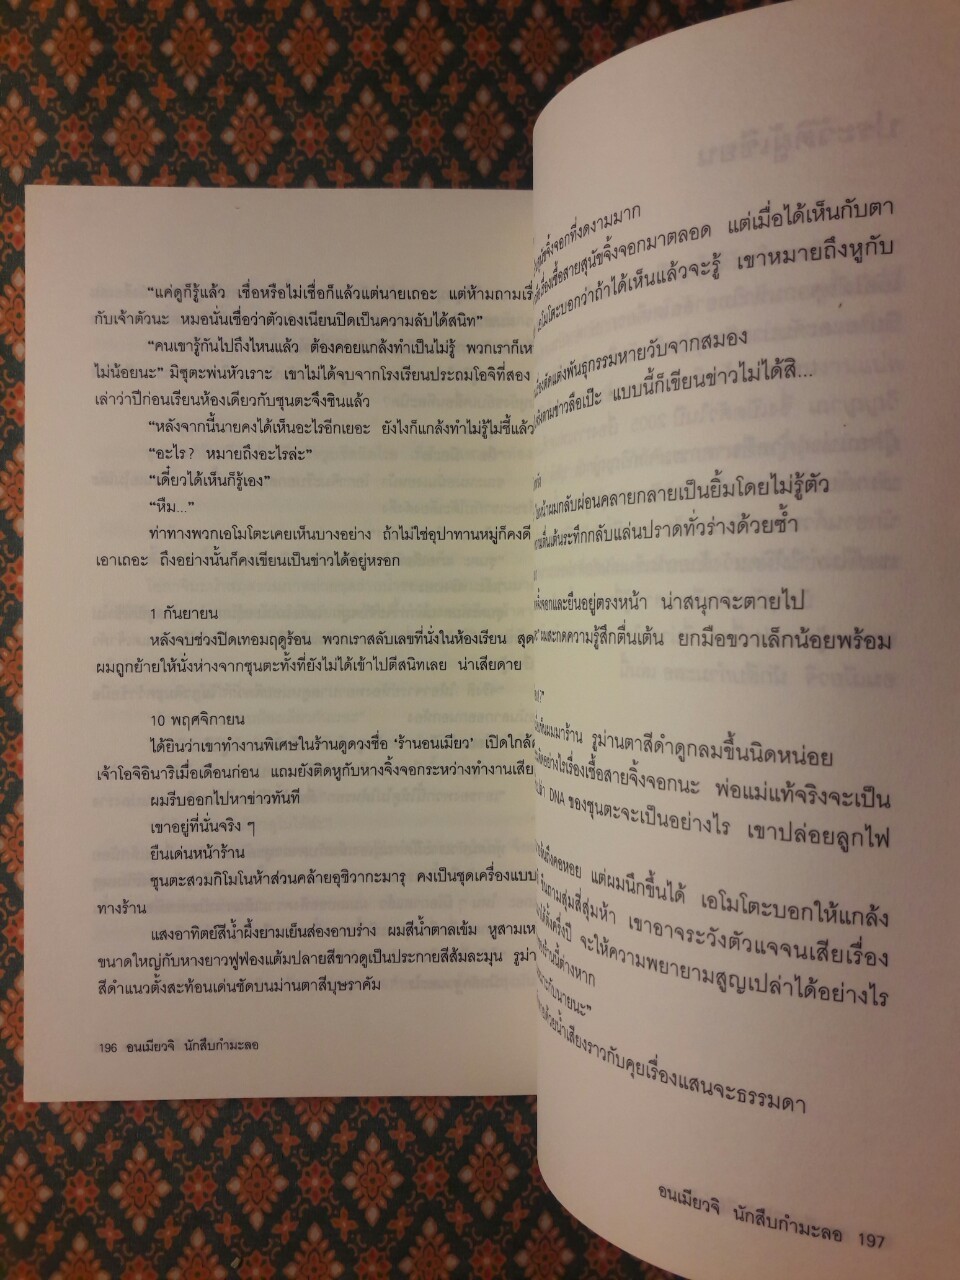 “แค่ดูก็รู้แล้ว เชื่อหรือไม่เชื่อก็แล้วแต่นายเถอะ แต่ห้ามถามเรื่
กับเจ้าตัวนะ หมอนั่นเชื่อว่าตัวเองเนียนปิดเป็นความลับได้สนิท”
“คนเขารู้กันไปถึงไหนแล้ว ต้องคอยแกล้งทำเป็นไม่รู้ พวกเราก็เห
ไม่น้อยนะ” มิซุตะพ่นหัวเราะ เขาไม่ได้จบจากโรงเรียนประถมโอจิที่สอง
เล่าว่าปีก่อนเรียนห้องเดียวกับชุนตะจึงชินแล้ว
“หลังจากนี้นายคงได้เห็นอะไรอีกเยอะ ยังไงก็แกล้งทำไม่รู้ไม่ชี้แล้ว
“อะไร? หมายถึงอะไรล่ะ”
“เดี๋ยวได้เห็นก็รู้เอง”
“หืม...”
ท่าทางพวกเอโมโตะเคยเห็นบางอย่าง ถ้าไม่ใช่อุปาทานหมู่ก็คงดี
เอาเถอะ ถึงอย่างนั้นก็คงเขียนเป็นข่าวได้อยู่หรอก
1 กันยายน
หลังจบช่วงปิดเทอมฤดูร้อน พวกเราสลับเลขที่นั่งในห้องเรียน สุด
ผมถูกย้ายให้นั่งห่างจากชุนตะทั้งที่ยังไม่ได้เข้าไปตีสนิทเลย น่าเสียดาย
10 พฤศจิกายน
ได้ยินว่าเขาทำงานพิเศษในร้านดูดวงชื่อ ‘ร้านอนเมียว’ เปิดใกล้
เจ้าโอจิอินาริเมื่อเดือนก่อน แถมยังติดหูกับหางจิ้งจอกระหว่างทำงานเสีย
ผมรีบออกไปหาข่าวทันที
เขาอยู่ที่นั่นจริง ๆ
ยืนเด่นหน้าร้าน
ชุนตะสวมกิโมโนห้าส่วนคล้ายอุชิวากะมารุ คงเป็นชุดเครื่องแบบ
ทางร้าน
แสงอาทิตย์สีน้ำผึ้งยามเย็นส่องอาบร่าง ผมสีน้ำตาลเข้ม หูสามเห
ขนาดใหญ่กับหางยาวฟูฟ่องแต้มปลายสีขาวดูเป็นประกายสีส้มละมุน รูม่า
สีดำแนวตั้งสะท้อนเด่นชัดบนม่านตาสีบุษราคัม
196 อนเมียวจิ นักสืบกำมะลอ
จิ้งจอกที่งดงามมาก
เรื่องเชื้อสายสุนัขจิ้งจอกมาตลอด แต่เมื่อได้เห็นกับตา
เอโมโตะบอกว่าถ้าได้เห็นแล้วจะรู้ เขาหมายถึงหูกับ
ดัดแต่งพันธุกรรมหายวับจากสมอง
ตามข่าวลือเป๊ะ แบบนี้ก็เขียนข่าวไม่ได้สิ...
หน้าผมกลับผ่อนคลายกลายเป็นยิ้มโดยไม่รู้ตัว
ตื่นเต้นระทึกกลับแล่นปราดทั่วร่างด้วยซ้ำ
จิ้งจอกและยืนอยู่ตรงหน้า น่าสนุกจะตายไป
สะกดความรู้สึกตื่นเต้น ยกมือขวาเล็กน้อยพร้อม
ผมมาร้าน รูม่านตาสีดำดูกลมขึ้นนิดหน่อย
อย่างไรเรื่องเชื้อสายจิ้งจอกนะ พ่อแม่แท้จริงจะเป็น
DNA ของชุนตะจะเป็นอย่างไร เขาปล่อยลูกไฟ
ถึงคอหอย แต่ผมนึกขึ้นได้ เอโมโตะบอกให้แกล้ง
ถามสุ่มสี่สุ่มห้า เขาอาจระวังตัวแจจนเสียเรื่อง
ตั้งครึ่งปี จะให้ความพยายามสูญเปล่าได้อย่างไร
งานนี้ต่างหาก
กับนายนะ”
ด้วยน้ำเสียงราวกับคุยเรื่องแสนจะธรรมดา
อนเมียวจิ นักสืบกำมะลอ 197